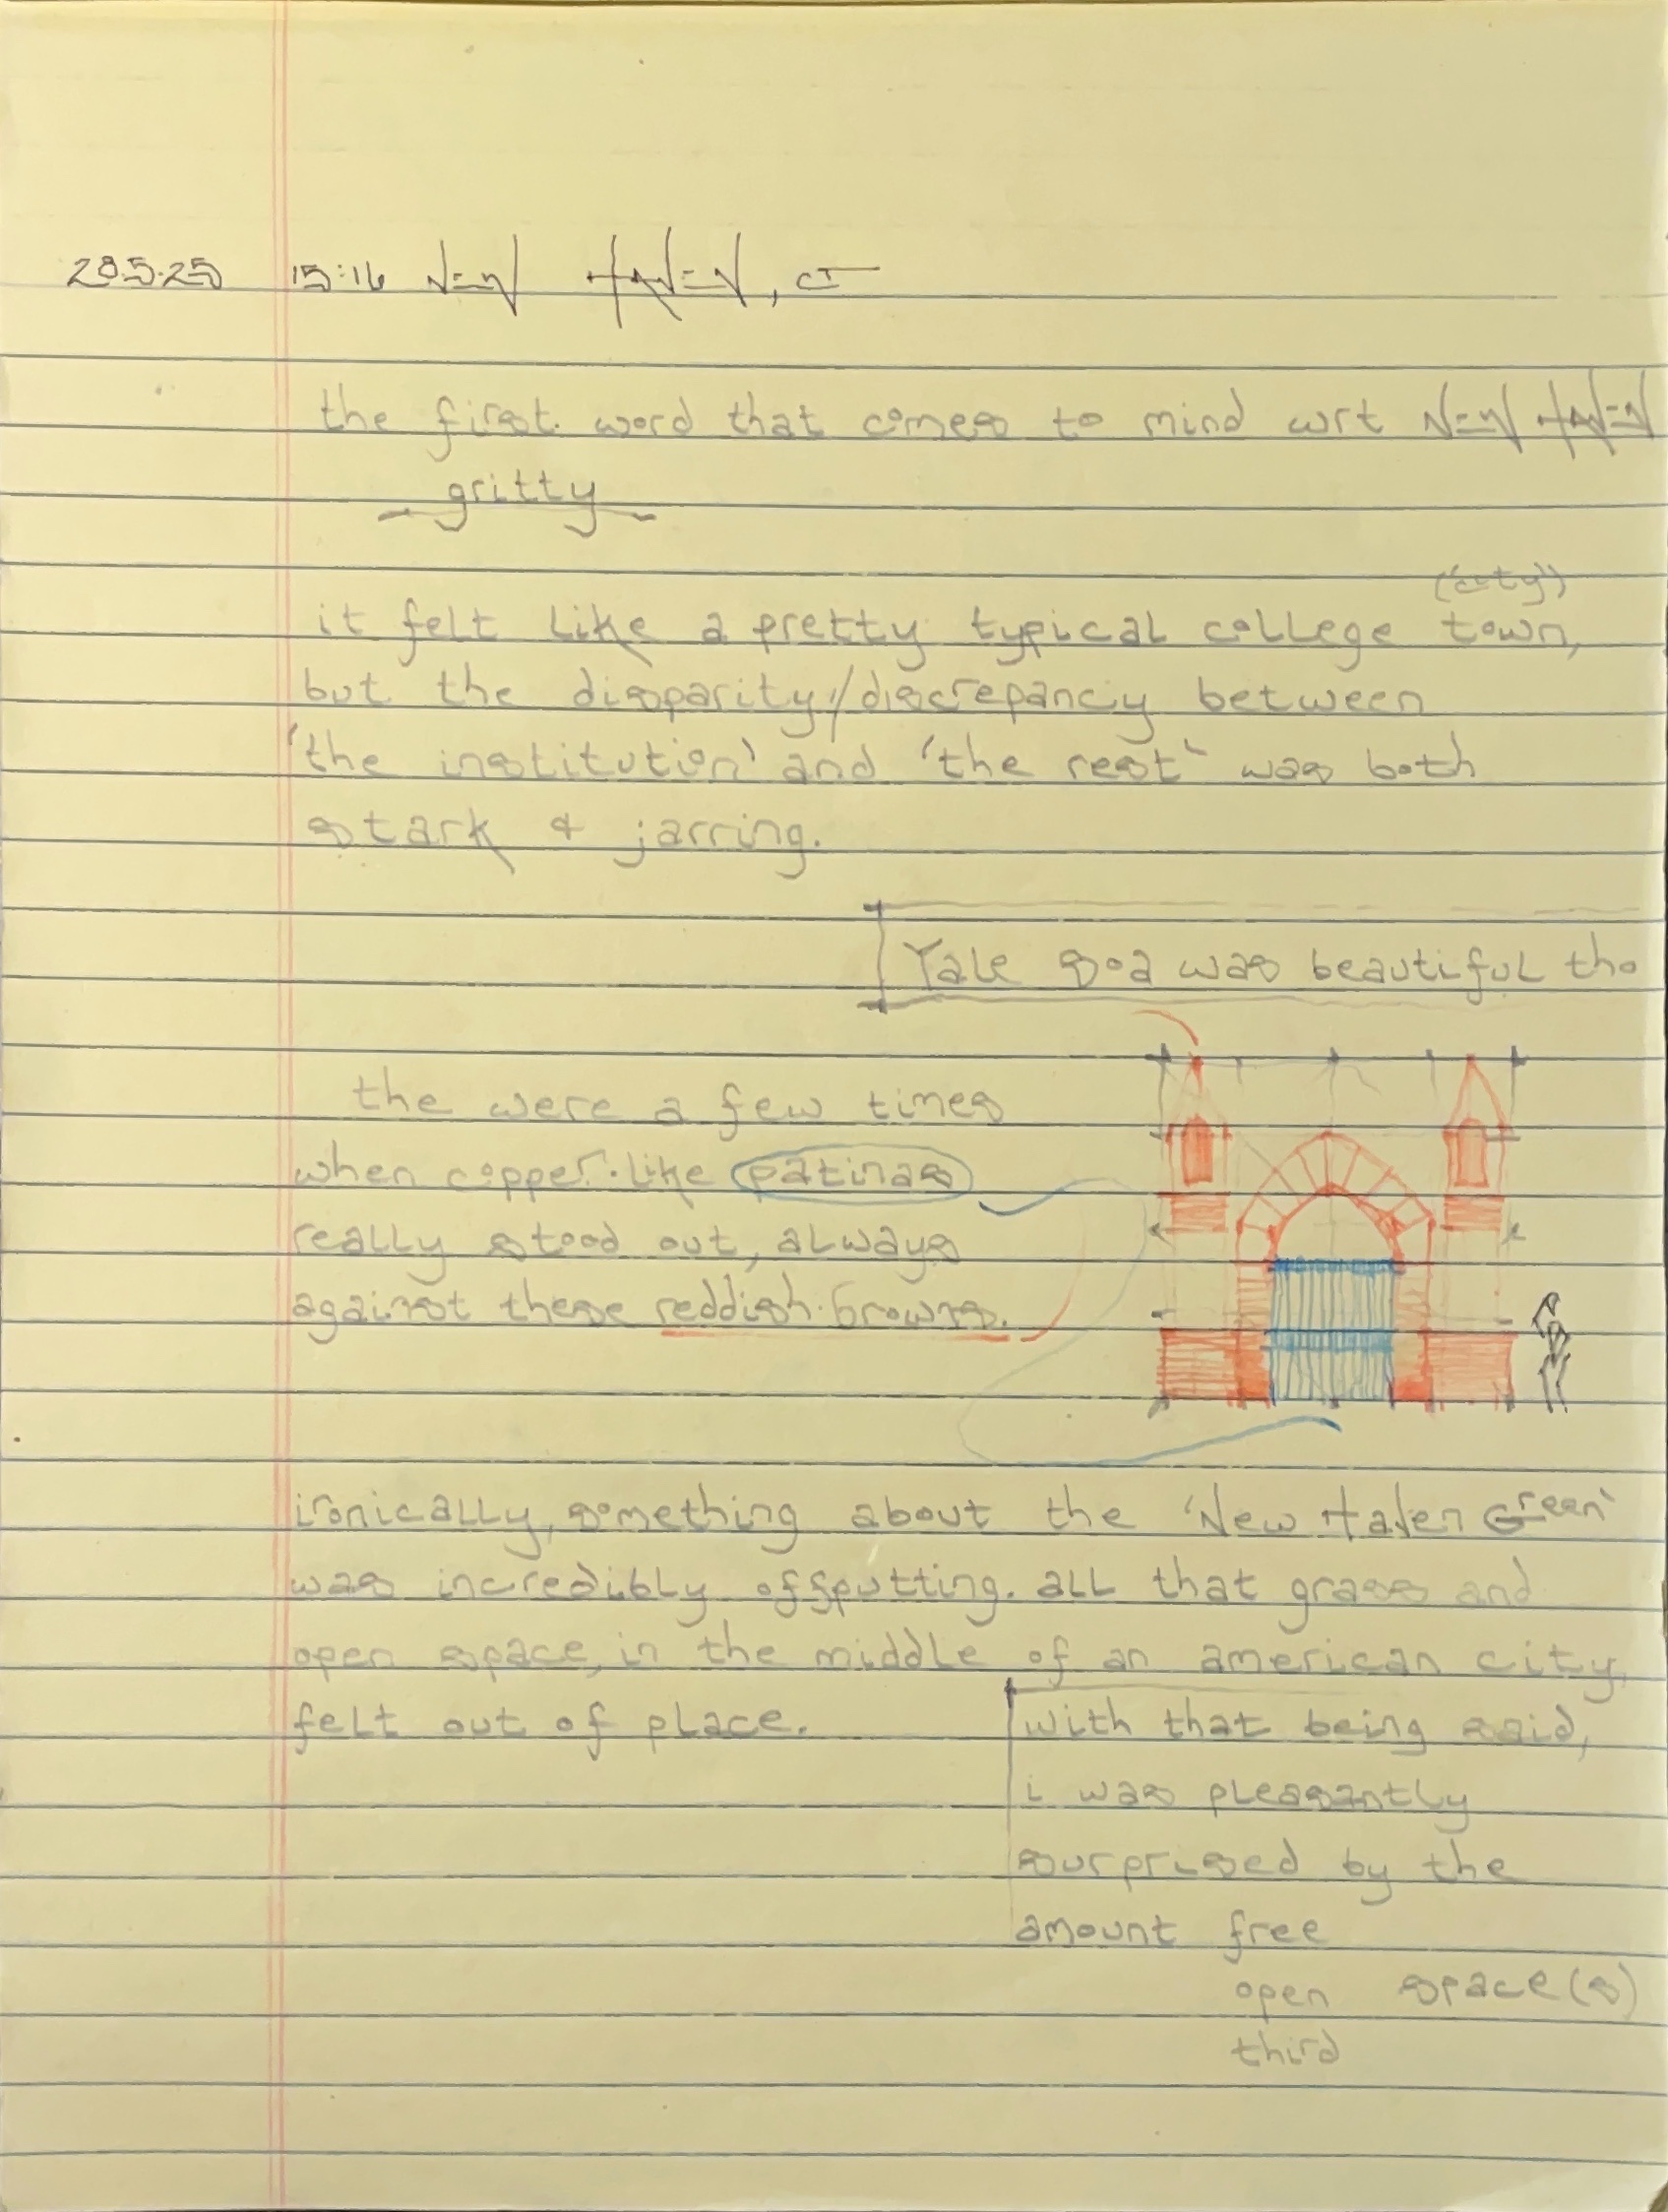 28.5.25 15:16 NEW HAVEN, CT
the first word that comes to mind wrt NEW HAVEN
gritty
(city)
it felt like a pretty typical college town,
but the disparity/discrepancy between
'the institution' and 'the rest' was both
stark & jarring.
Yale soa was beautiful tho
the were a few times
when copper-like patinas
really stood out, always
against these reddish-browns.
ironically, something about the 'New Haven Green'
was incredibly offputting. all that grass and
open space, in the middle of an american city,
felt out of place.
with that being said,
i was pleasantly
surprised by the
amount free
open space(s)
third